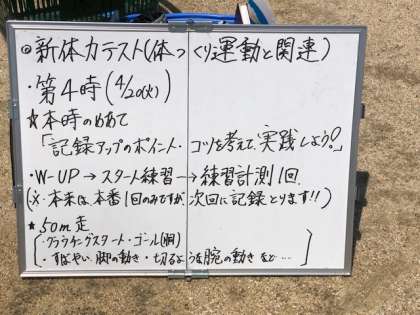 ◎新体力テスト(体つくり運動と関連)
・第4時(4/20(火))
☆本時のめあて
「記録アップのポイント・コツを考えて、実践しよう!」
・W-UP→スタート練習→練習計測1回.
(※・本来は、本番1回のみですが、次回に記録とります!!)
★50m走
・クラウチングスタート・ゴール(胴)
・すばやい脚の動き・切るような腕の動きなど…